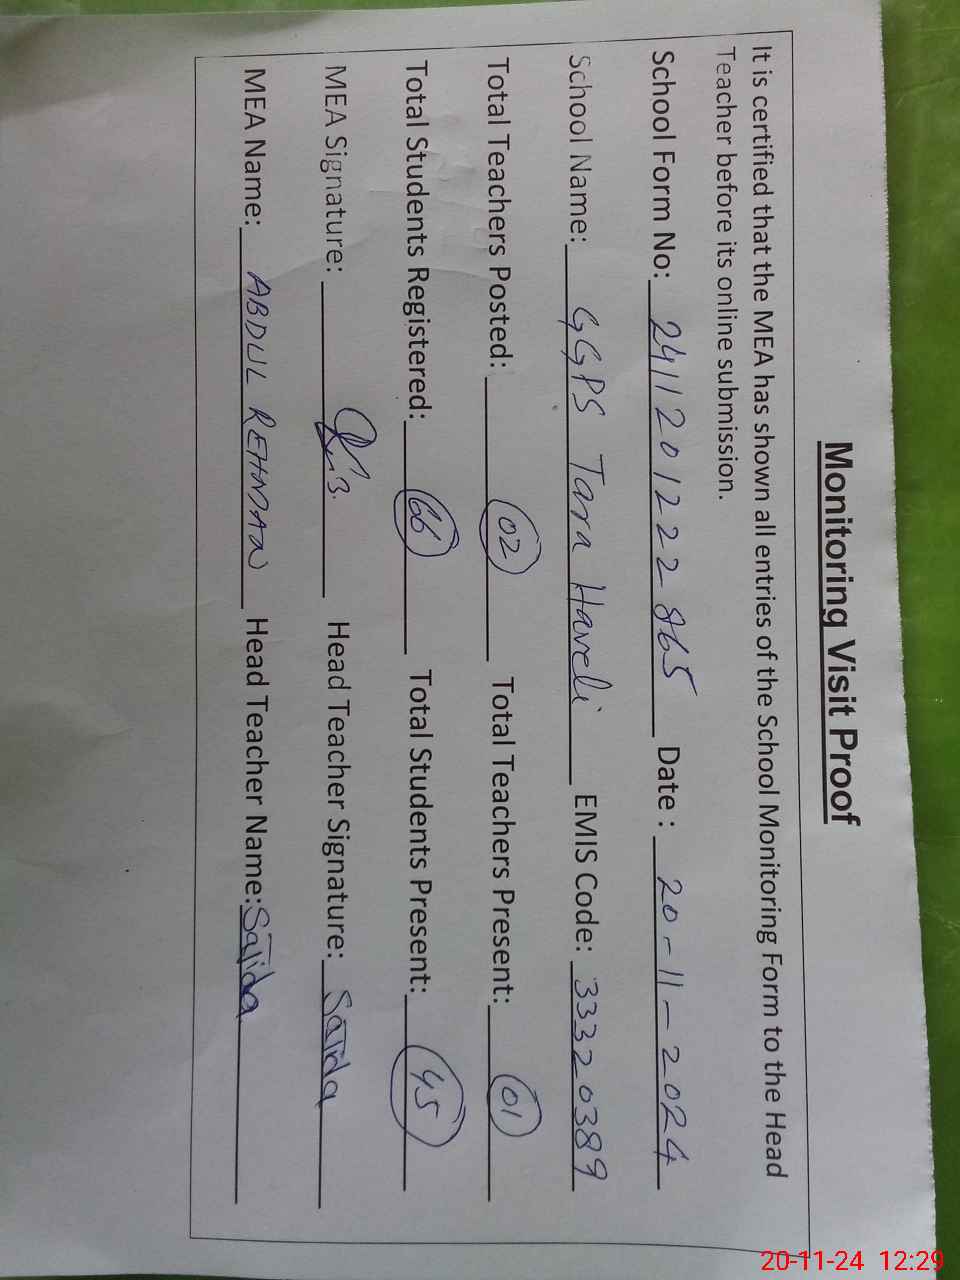 Monitoring Visit Proof
It is certified that the MEA has shown all entries of the School Monitoring Form to the Head
Teacher before its online submission.
School Form No: 2411201222865 Date : 20-11-2024
School Name: GGPS Tara Haveli EMIS Code: 33320389
Total Teachers Posted: 02 Total Teachers Present: 01
Total Students Registered: 66 Total Students Present: 45
MEA Signature: Head Teacher Signature: Sajida
MEA Name: ABDUL REHMAN Head Teacher Name: Sajida
20-11-24 12:29